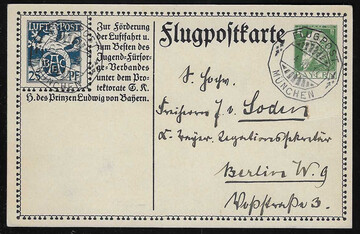 LUFTPOST
BAC
25 PF
Zur Förderung
der Luftfahrt u.
zum Besten des
Jugend-Fürsor-
ge-Verbandes
unter dem Pro-
tektorate S.K.
H. des Prinzen Ludwig von Bayern.
Flugpostkarte
MÜNCHEN
BAYERN
S. Hochw.
Freiherrn J. v. Soden
K. Bayer. Legationssekretär
Berlin W. 9
Voßstraße 3.